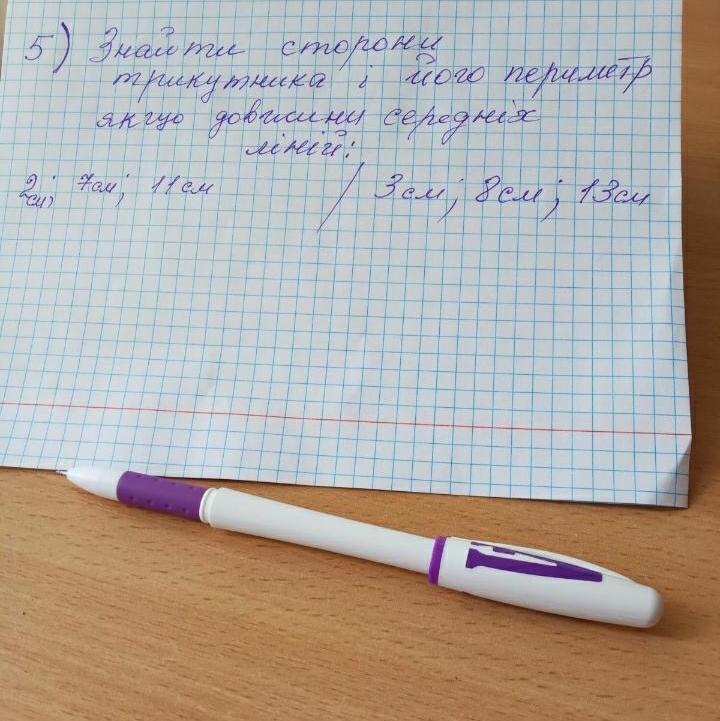 5) Знайти сторони
трикутника і його периметр
якщо довжини середніх
ліній:
2см; 7см; 11см / 3см; 8см; 13см